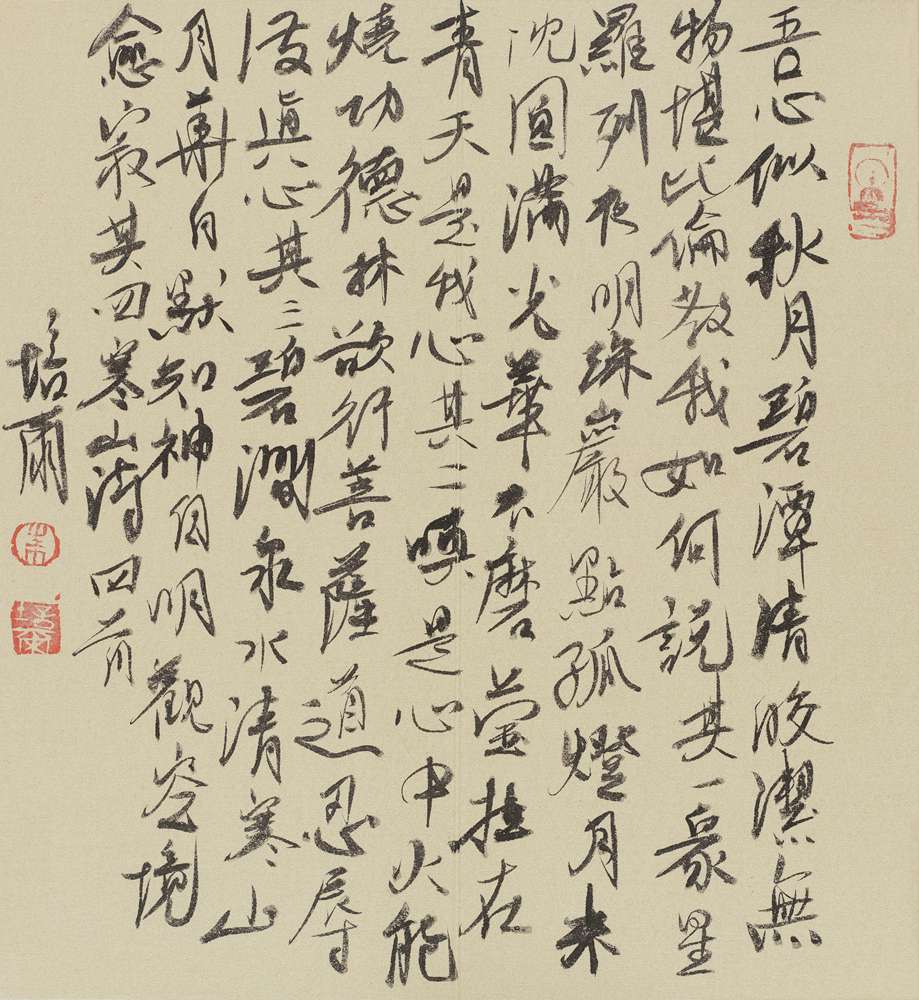 吾心似秋月碧潭清皎潔無
物堪比倫教我如何説其一衆星
羅列夜明珠巖點孤燈月未
沈圓滿光華不磨瑩挂在
青天是我心其二嗔是心中火能
燒功德林欲行菩薩道忍辱
護真心其三碧澗泉水清寒山
月華白默知神自明觀空境
愈寂其四寒山詩四首
培爾